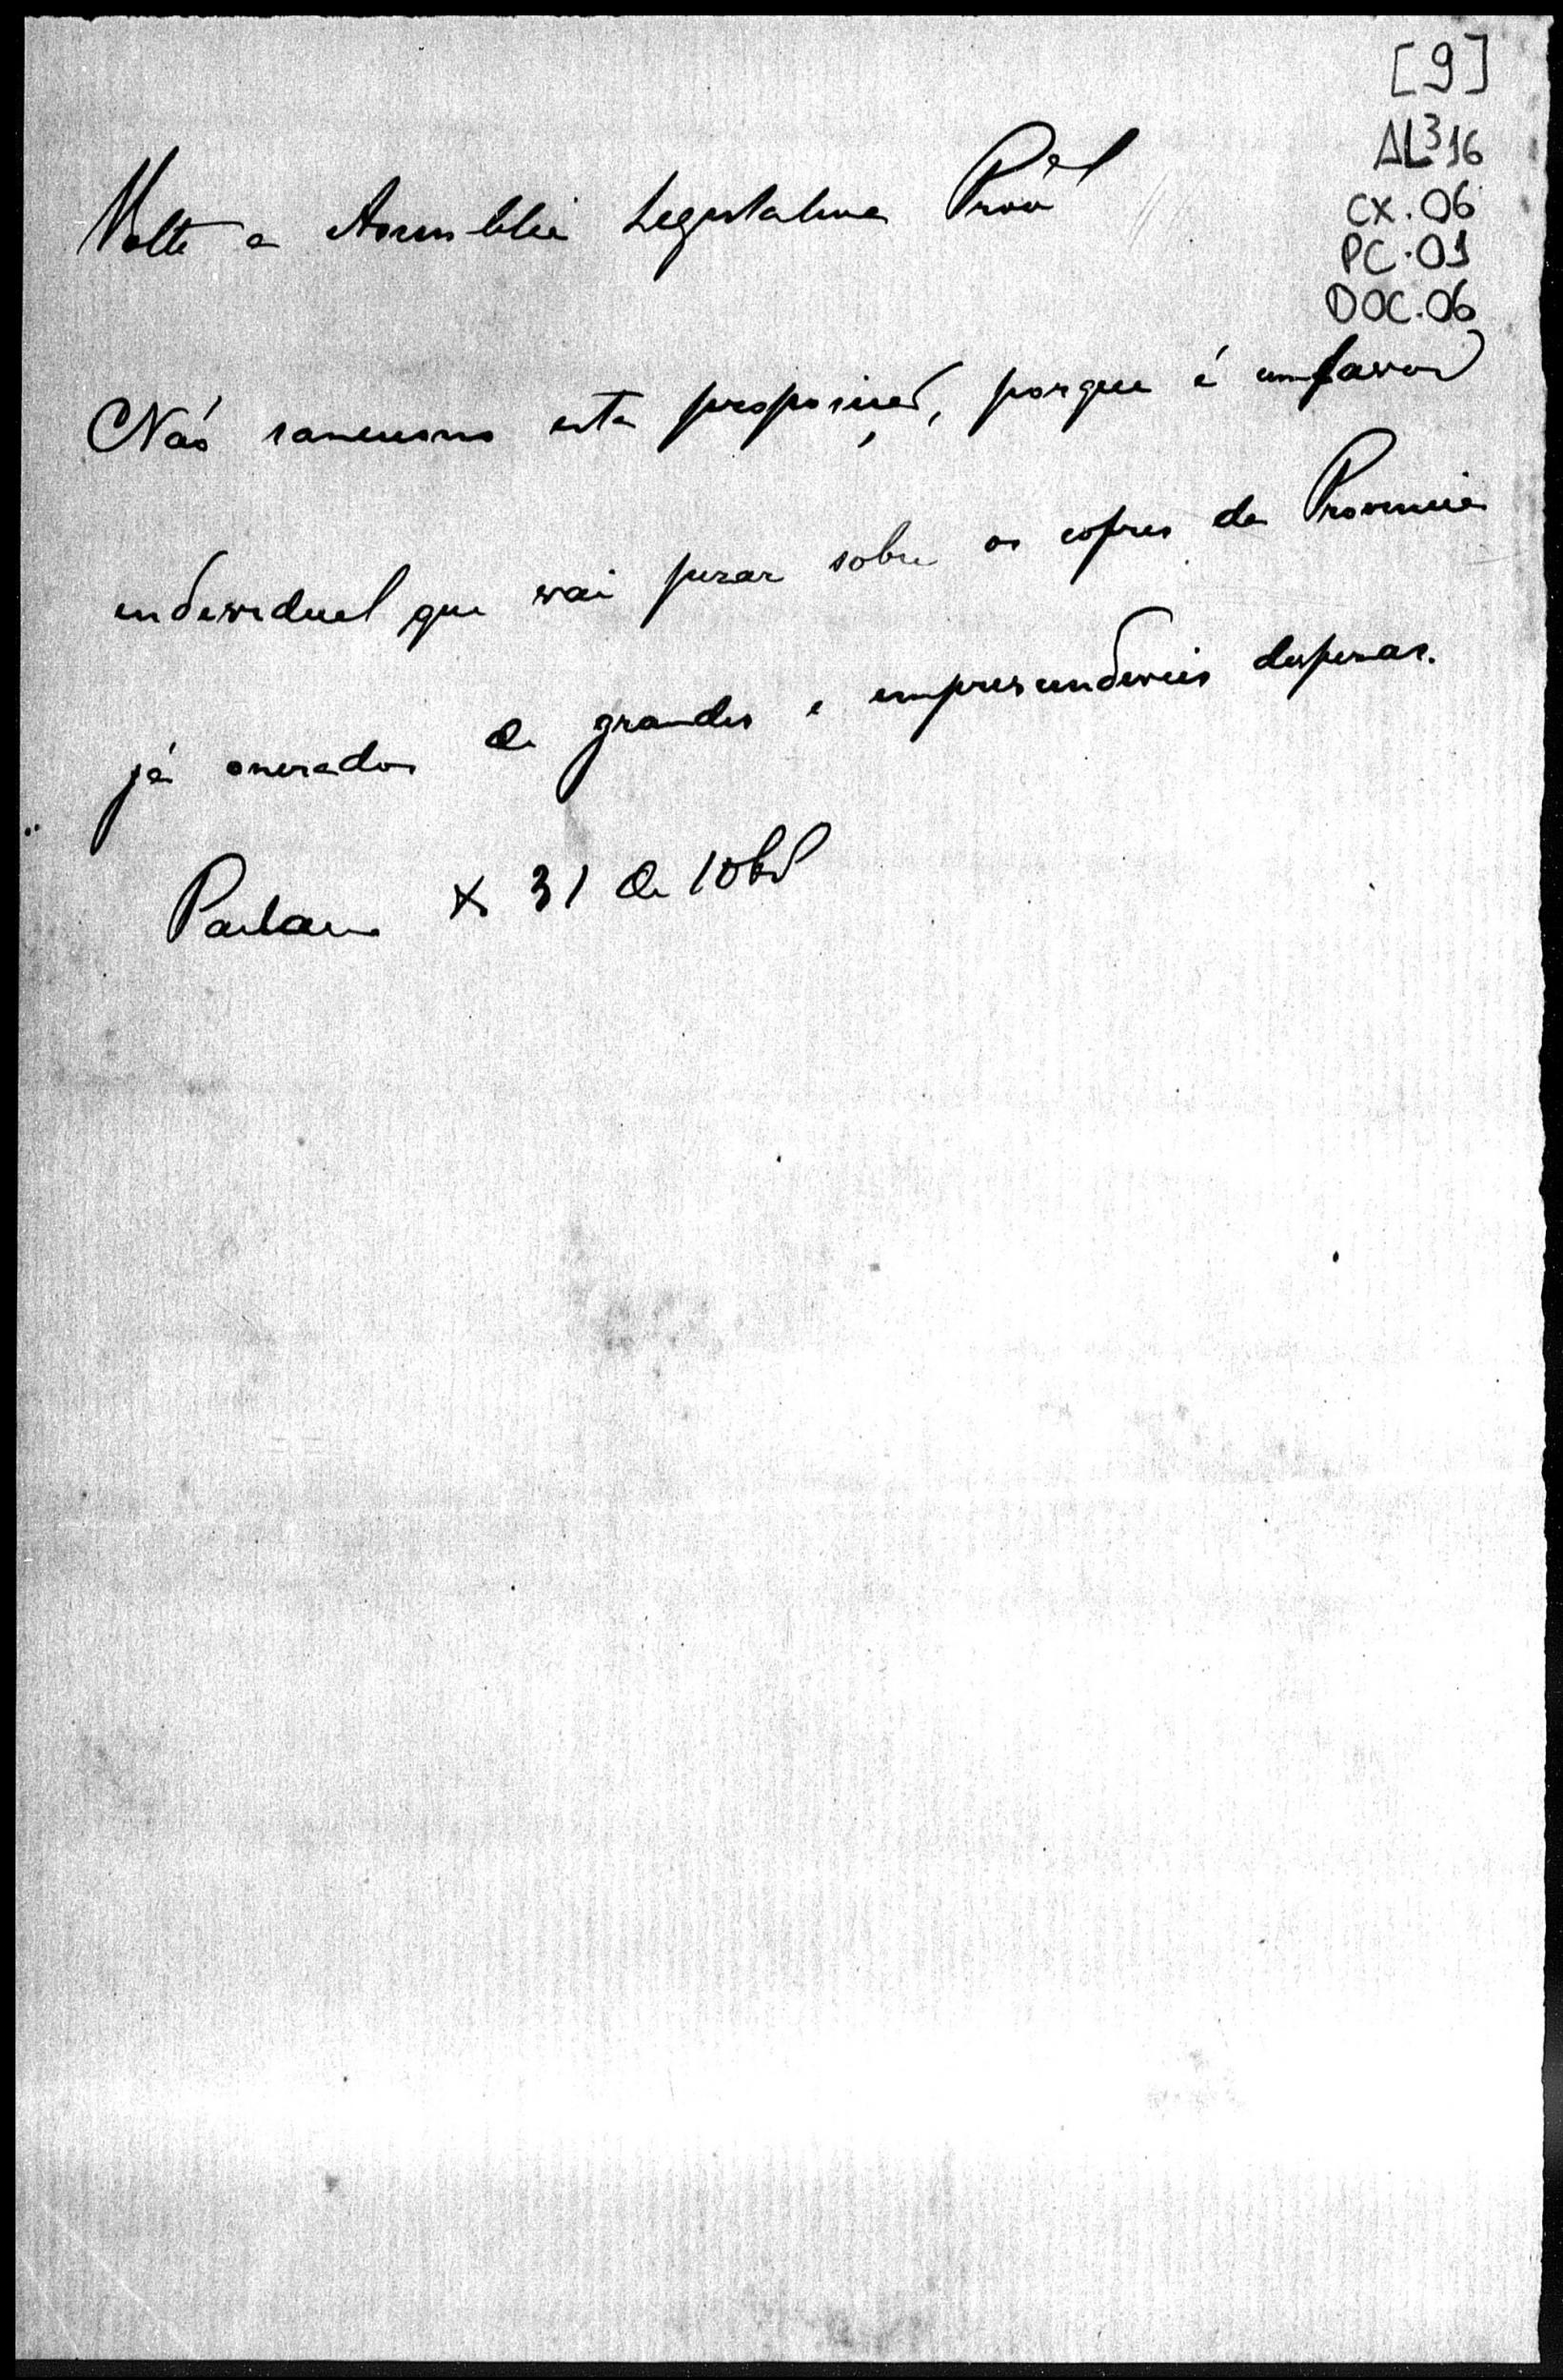 [9]
AL³16
CX.06
PC.01
DOC.06
Volte a Assemblêa Legislativa Provᵃˡ
Não sancciono esta proposição, porque é um favor
endevidual que vai pezar sobre os cofres da Provincia
já onerados de grandes e empresendiveis despezas.
31 de 10bro